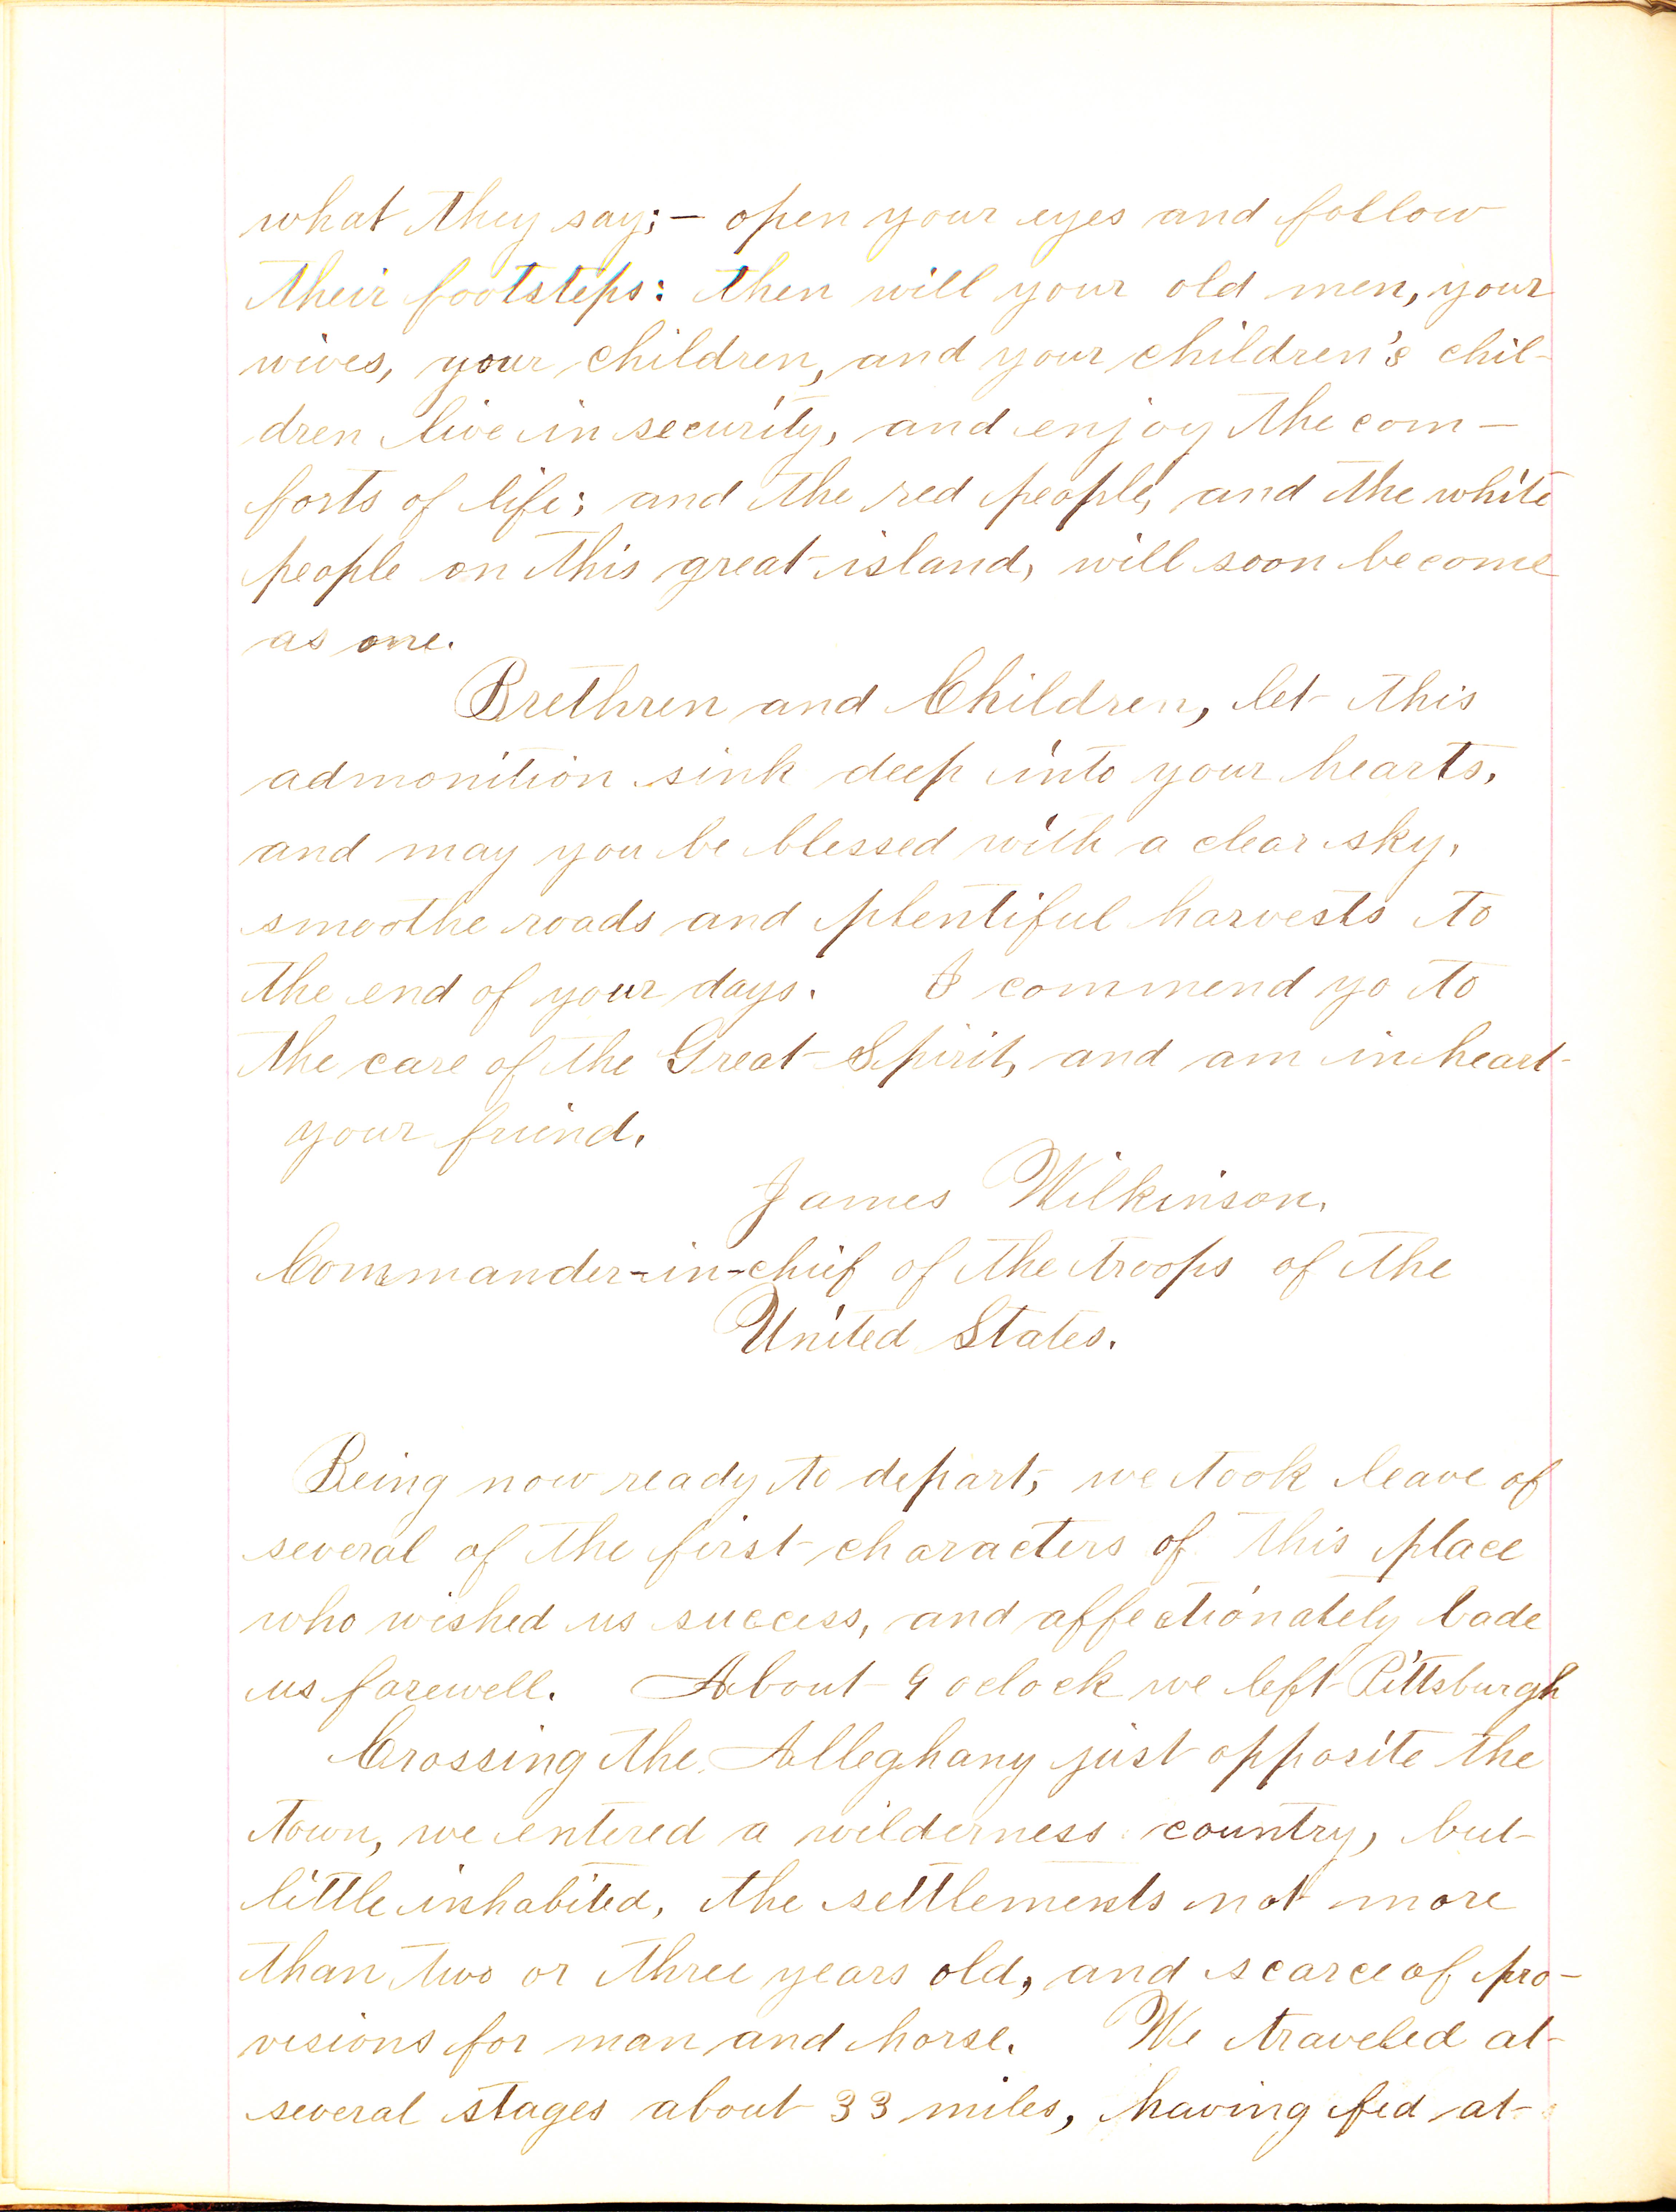 what they say; – open your eyes and follow
their footsteps: then will your old men, your
wives, your children, and your children's chil-
dren live in security, and enjoy the com-
forts of life; and the red people, and the white
people on this great island, will soon become
as one.
Brethren and Children, let this
admonition sink deep into your hearts,
and may you be blessed with a clear sky,
smoothe roads and plentiful harvests to
the end of your days. I commend yo to
the care of the Great Spirit, and am in heart
your friend.
James Wilkinson.
Commander-in-chief of the troops of the
United States.
Being now ready to depart, we took leave of
several of the first characters of this place
who wished us success, and affectionately bade
us farewell. About 9 oclock we left Pittsburgh
Crossing the Alleghany just opposite the
town, we entered a wilderness country, but
little inhabited, the settlements not more
than two or three years old, and scarce of pro-
visions for man and horse. We traveled at
several stages about 33 miles, having fed at